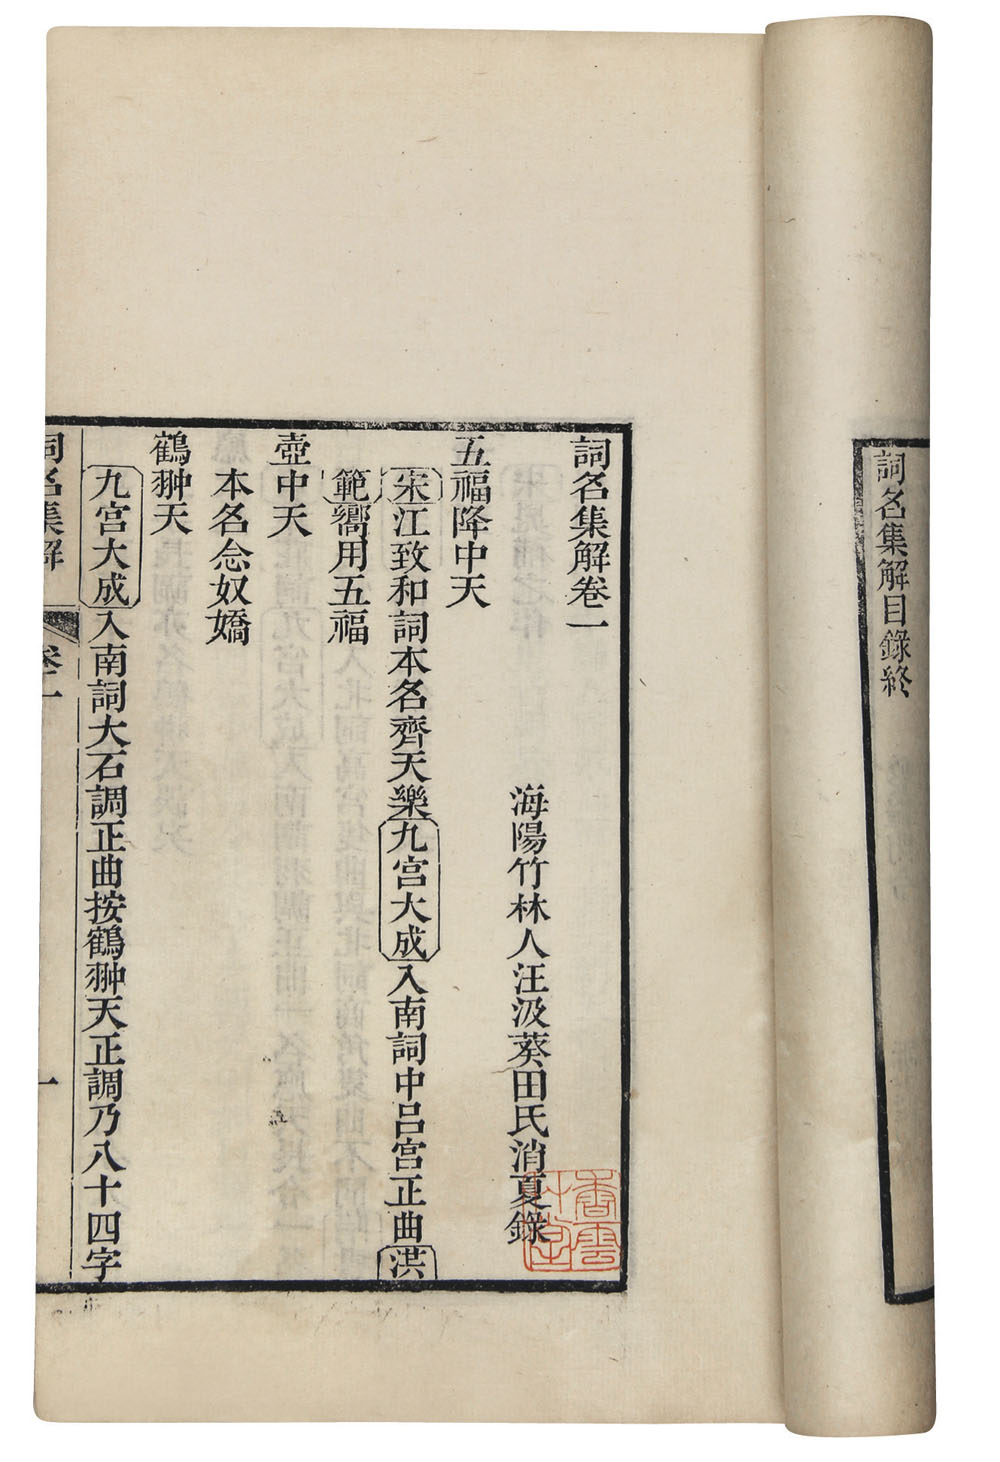 詞名集解目錄終
詞名集解卷一
海陽竹林人汪汲葵田氏消夏錄
五福降中天
宋江致和詞本名齊天樂九宮大成入南詞中呂宮正曲洪
範嚮用五福
壺中天
本名念奴嬌
鶴翀天
九宮大成入南詞大石調正曲按鶴翀天正調乃八十四字
詞名集解 卷一 一